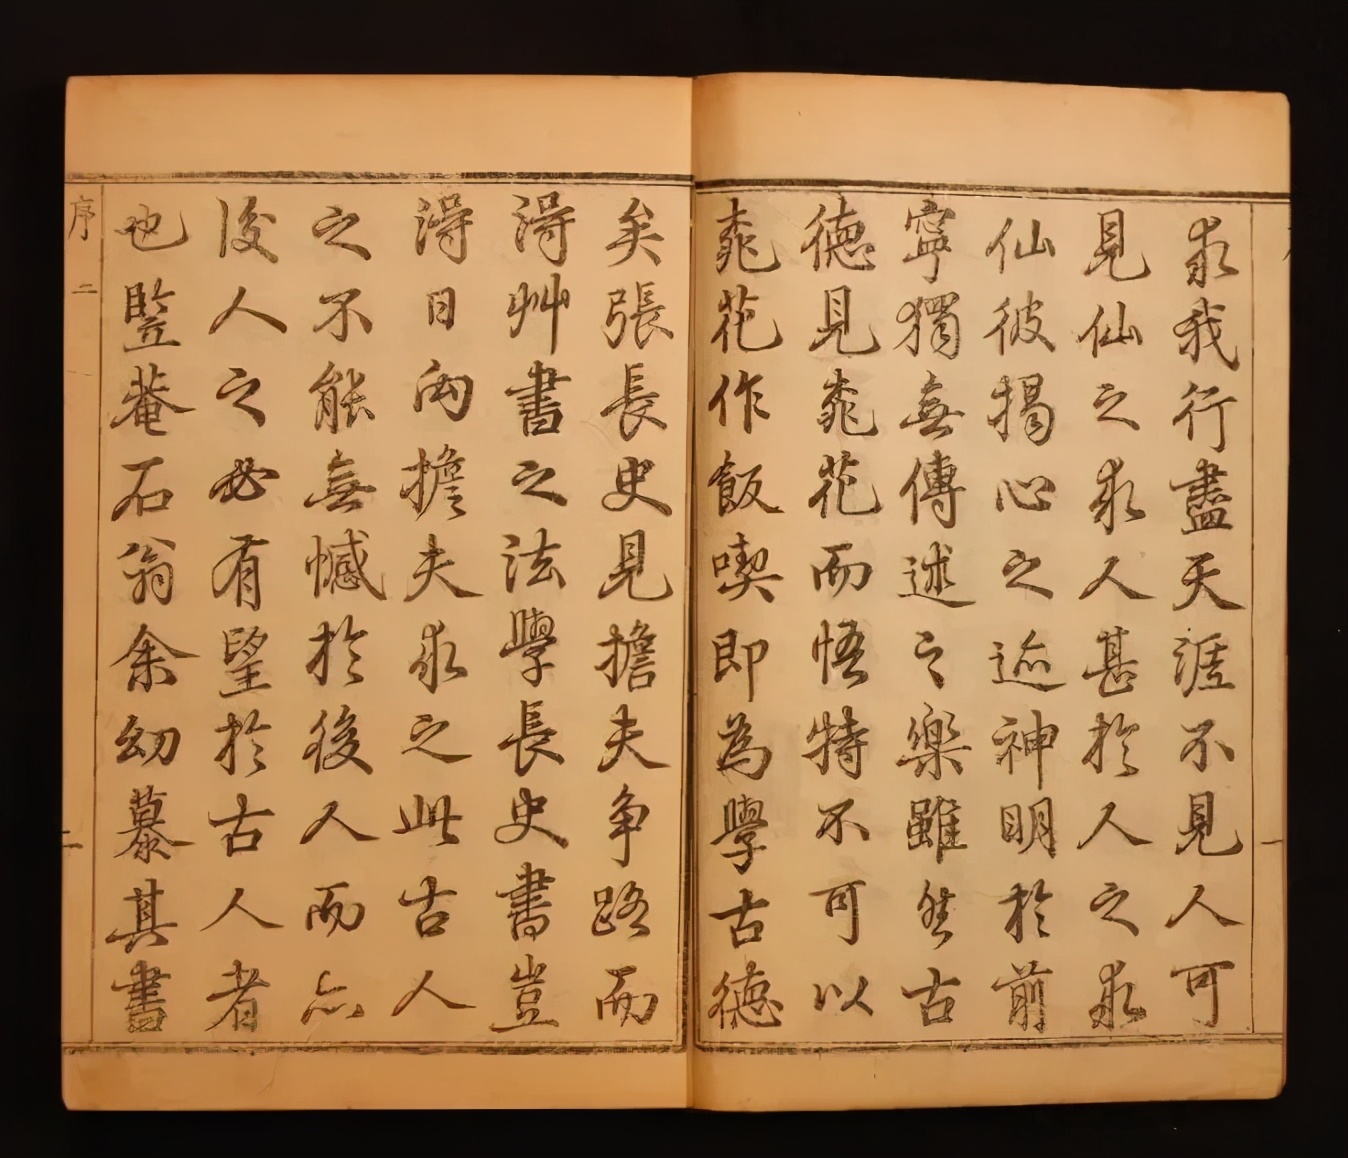 求我行盡天涯不見人可
見仙之求人甚於人之求
仙彼揭心之迹神明於前
寧獨無傳述之樂雖然古
德見桃花而悟特不可以
桃花作飯喫即為學古德
矣張長史見擔夫争路而
得艸書之法學長史書豈
得日向擔夫求之此古人
之不能無憾於後人而亦
後人之必有望於古人者
也竪菴石翁余幼慕其書
序二